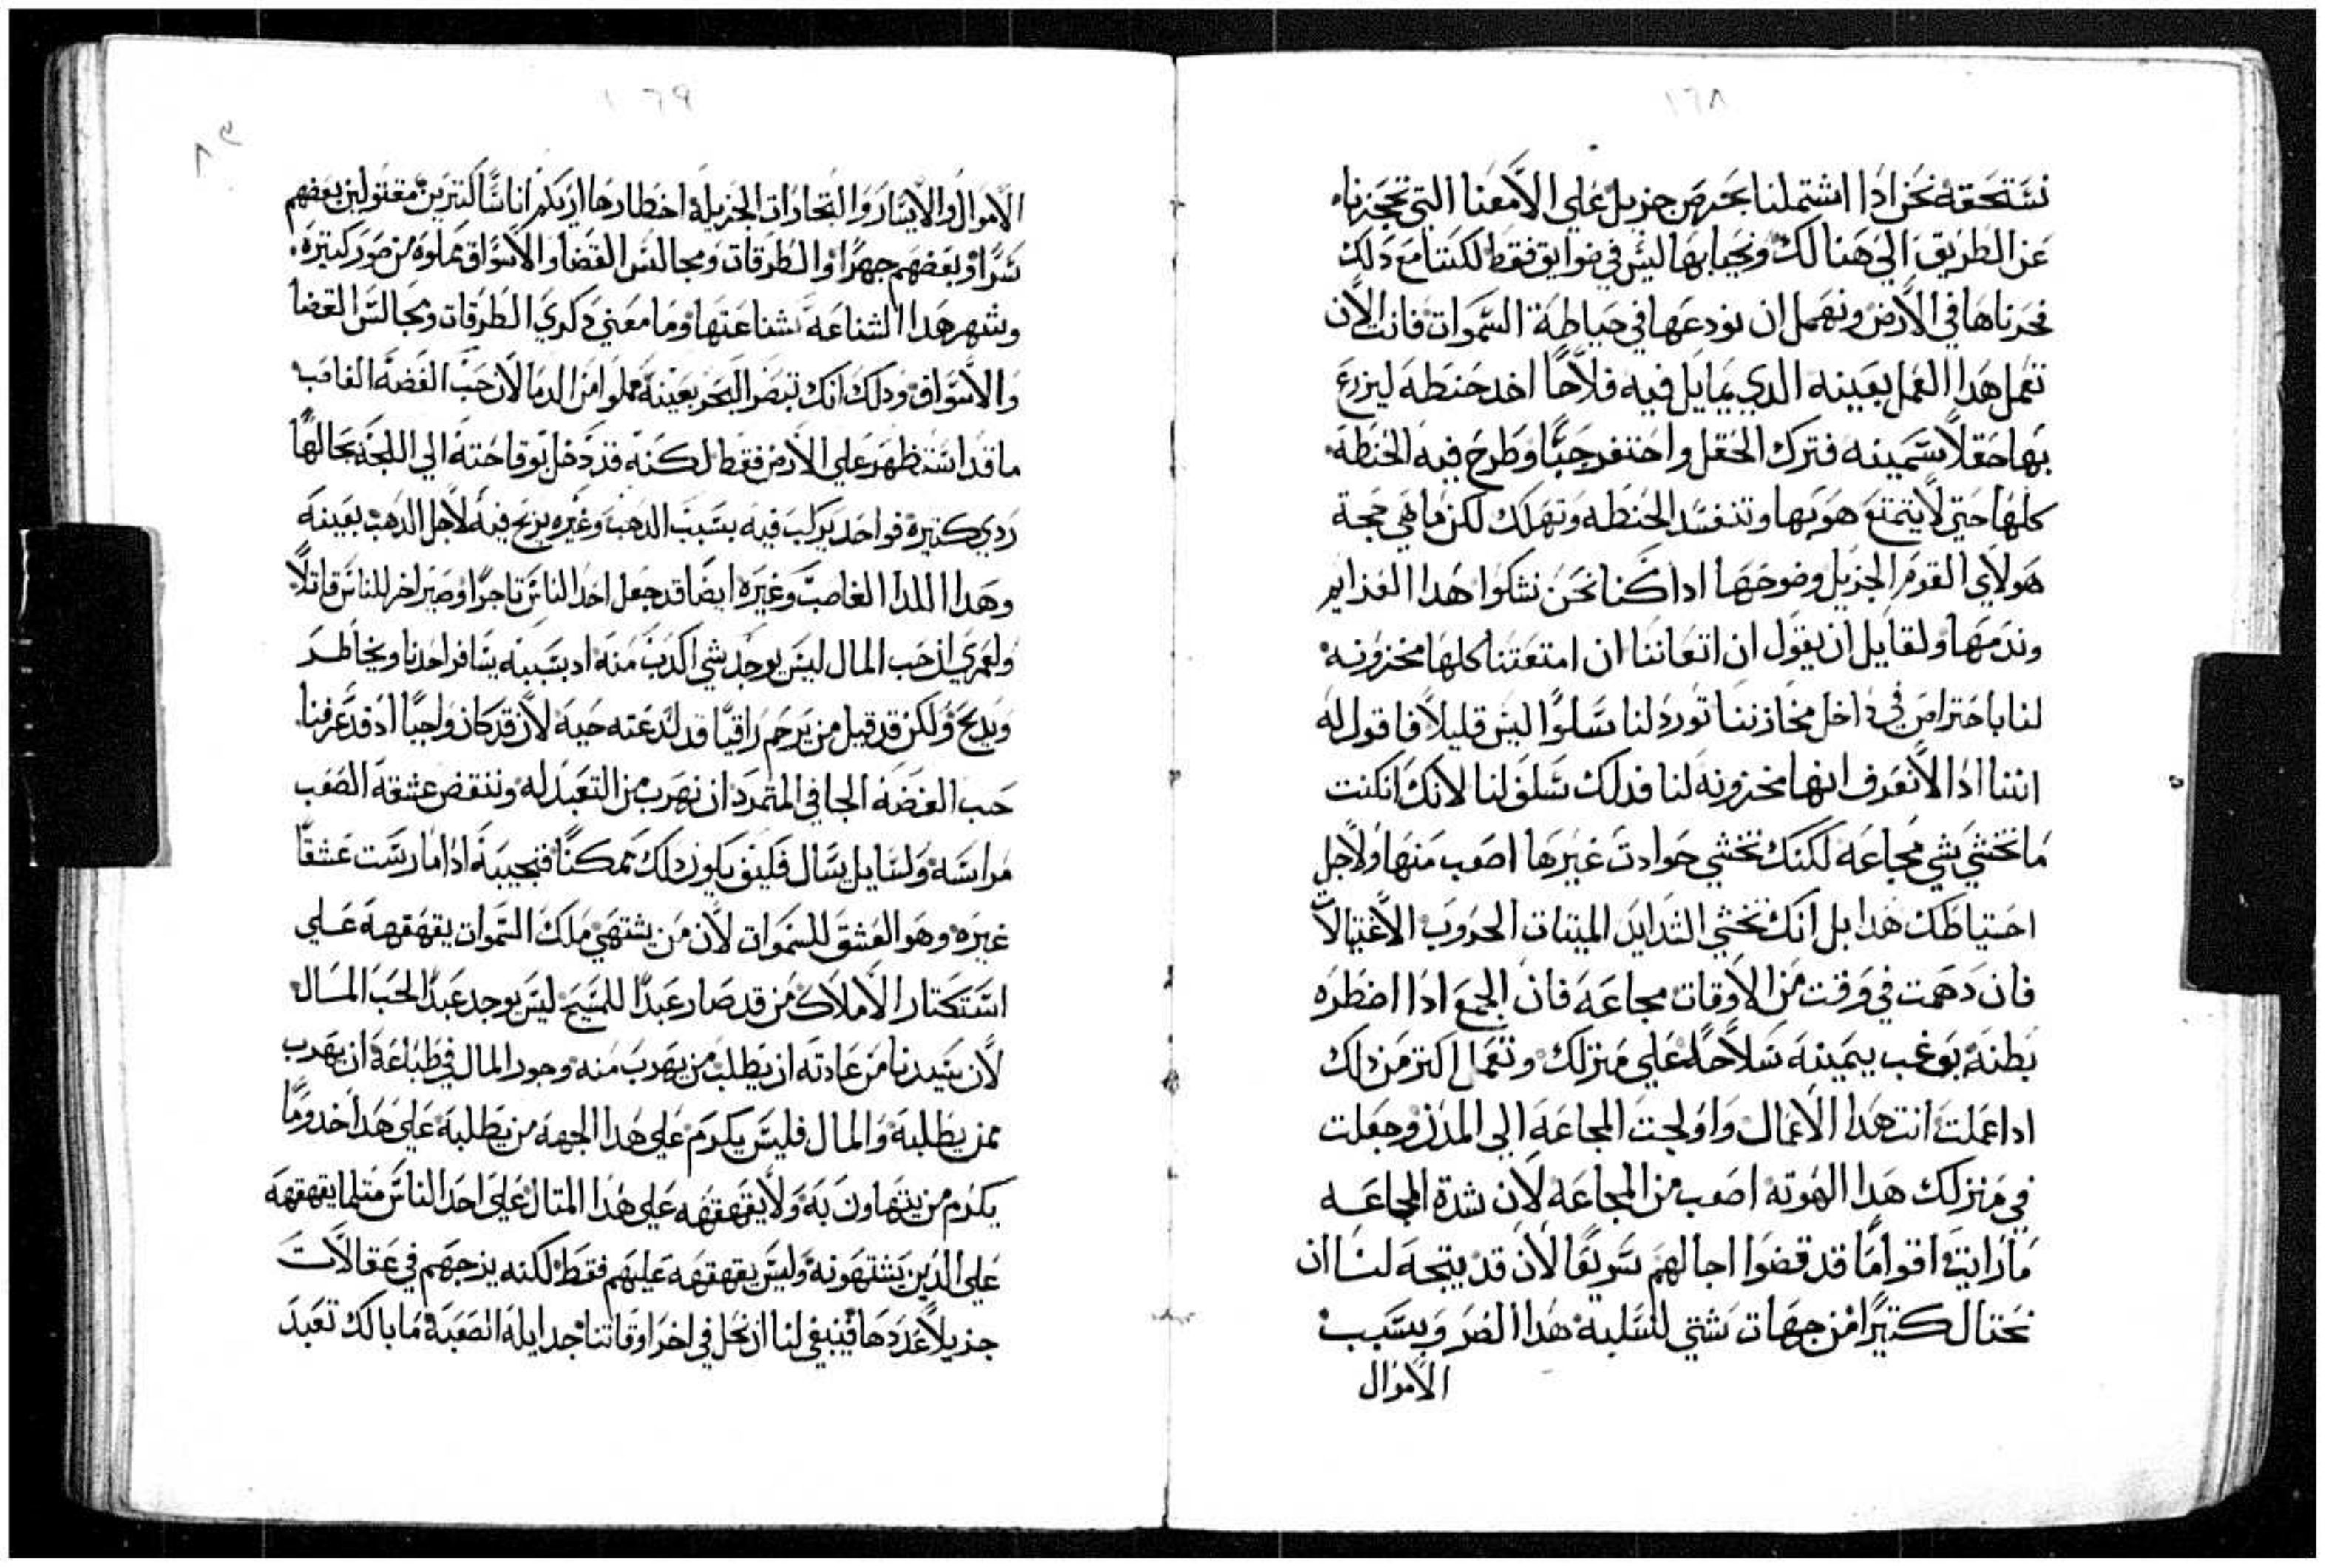 ١٦٨
نستحقه نحن ادا اشتملنا بحرص جزيل علي الامعنا التي تحجزناه
عن الطريق الي هنالك ونحيا بها ليس في ضوايق فقط لكننا مع دلك
نخزناها في الارض ونهمل ان نودعها في حياطة السموات فانت الان
تعمل هدا العمل بعينه الدي يمايل فيه فلاحا اخد حنطه ليزرع
بها حقلا سمينه فترك الحقل واحتفر جبا وطرح فيه الحنطه
كلها حتي لا يتمتع هو بها وتنفسد الحنطه وتهلك لكن ما هي حجة
هولاي القوم الجزيل وضوحها ادا كنا نحن نشكوا هدا العزايم
وندمها ولقايل ان يقول ان اتعاننا ان امتعتنا كلها مخزونه
لنا باحتراص في داخل مخازننا تورد لنا سلوا ليس قليلا فاقول له
اننا ادا لا نعرف انها مخزونه لنا فدلك سلف لنا لانك ان كنت
ما تخشي شي مجاعه لكنك تخشي حوادت غيرها اصعب منها ولاجل
احتياطك هدا بل انك تخشي الشدايد الميتات الحروب الاغتيالات
فان دهمت في وقت من الاوقات مجاعه فان الجمع ادا اضطره
بطنه بوغب بيمينه سلاحه علي منزلك وتعمل اكتر من دلك
ادا عملت انت هدا الاعمال واولجت المجاعه الي المدن وجعلت
في منزلك هدا الهوته اصعب من المجاعه لان شدة المجاعه
ما رايت اقواما قد قضوا اجالهم سريعا لان قد يتجه لنا ان
نحتال كتيرا من جهات شتي لتسليه هدا الضر وبسبب
الاموال
١٦٩
الاموال والايسار والتجارات الجزيلة اخطارها اريكم اناسا كتيرين مقتولين بعضهم
سرا وبعضهم جهرا والطرقات ومجالس القضا والاسواق مملوه من صور كتيره
وشهر هدا الشناعه بشناعتها وما معني دكري الطرقات ومجالس القضا
والاسواق ودلك انك تبصر البحر بعينه مملوا من الدما لان حب الفضه الغاصب
ما قد استظهر علي الارض فقط لكنه قد دخل بوقاحته الي اللجه بحالها
ردي كتيره فواحد يركب فيه بسبب الدهب وغيره يزبح فيه لاجل الدهب بعينه
وهدا المدا الغاصب وغيره ايضا قد جعل احد الناس تاجرا وصير اخر للناس قاتلا
ولعمري ان حب المال ليس يوجد شي اكدب منه اد بسببه يسافر احدنا ويخاطر
ويدبح ولكن قد قيل من يرحم راقيا قد لدغته حيه لان قد كان واجبا اد قد عرفنا
حب الفضه الجافي المتمرد ان نهرب من التعبد له وننقض عشقه الصعب
مراسه ولسايل يسال فكيف يكون دلك ممكنا فنجيبه ادا مارست عشقا
غيره وهو العشق للسموات لان من يشتهي ملك السموات يقهقهه علي
استكتار الاملاك من قد صار عبدا للمسيح ليس يوجد عبدا لحب المال
لان سيدنا من عادته ان يطلب من يهرب منه وجود المال في طباعه ان يهرب
ممن يطلبه والمال فليس يكرم علي هدا الجهه من يطلبه علي هدا خدوما
يكرم من يتهاون به ولا يقهقهه علي هدا المتال علي احد الناس متلما يقهقهه
علي الدين يشتهونه وليس يقهقهه عليهم فقط لكنه يزجهم في عقالات
جزيلا عددها فينبغي لنا ان نحل في اخر اوقاتنا جدايله الصعبه ما بالك تعبد